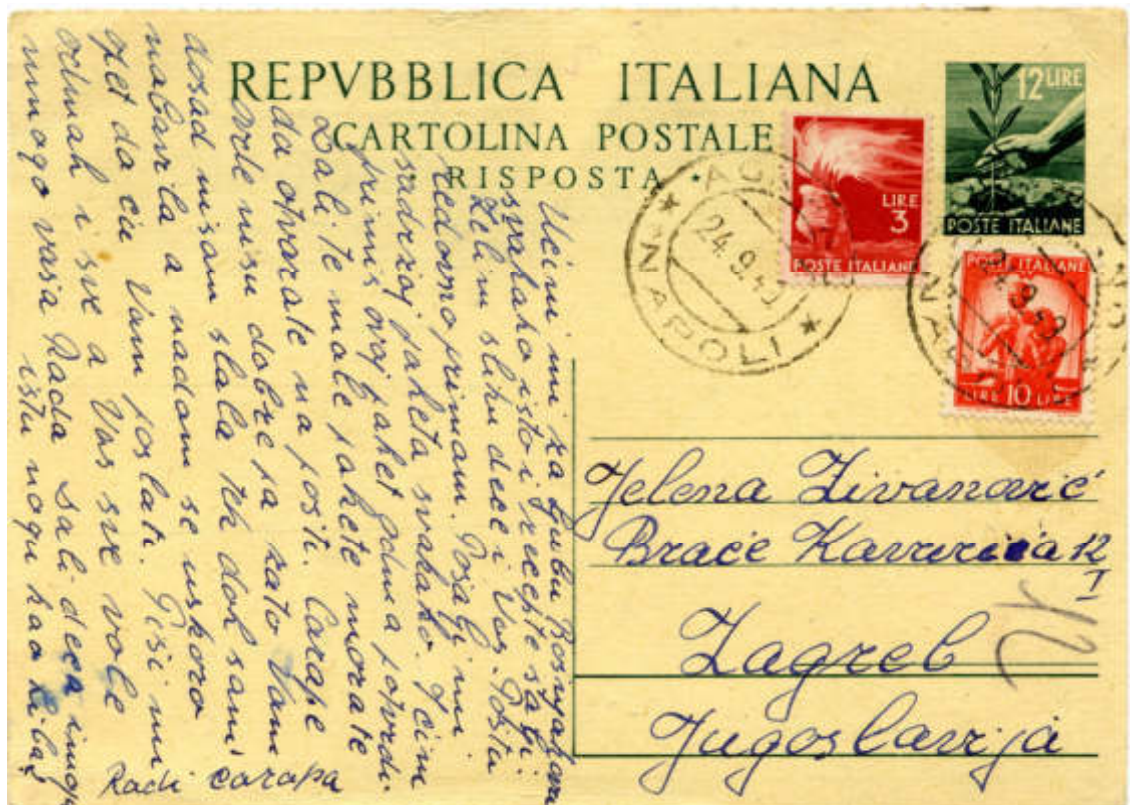 REPVBBLICA ITALIANA
CARTOLINA POSTALE
RISPOSTA
12 LIRE
POSTE ITALIANE
LIRE
3
POSTE ITALIANE
POSTE ITALIANE
LIRE 10 LIRE
NAPOLI
24.9.49
Jelena Živanović
Braće Kavurića 12
I
Zagreb
Jugoslavija
12
Učini mi za ljubu
svakako isto i recepte šalji.
Želim sliku dece i Vas. Poštu
redovno primam. Pošalji mi
sadržaj paketa svakako. I čim
primiš ovaj paket odma potvrdi.
Žali te male pakete morate
da otvarate na pošti. Čarape
ovde nisu dobre pa zato Vam
dosad nisam slala tek dok sam
nabavila a nadam se uskoro
opet da ću Vam poslati. Piši mi
odmah i sve a Vas sve vole
mnogo vaša Rada šali deca imaju
istu nogu kao
Radi čarapa